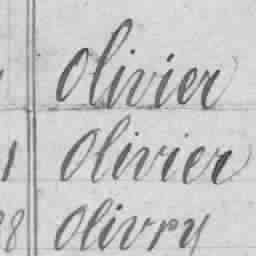 Olivier
1 Olivier
8 Olivry